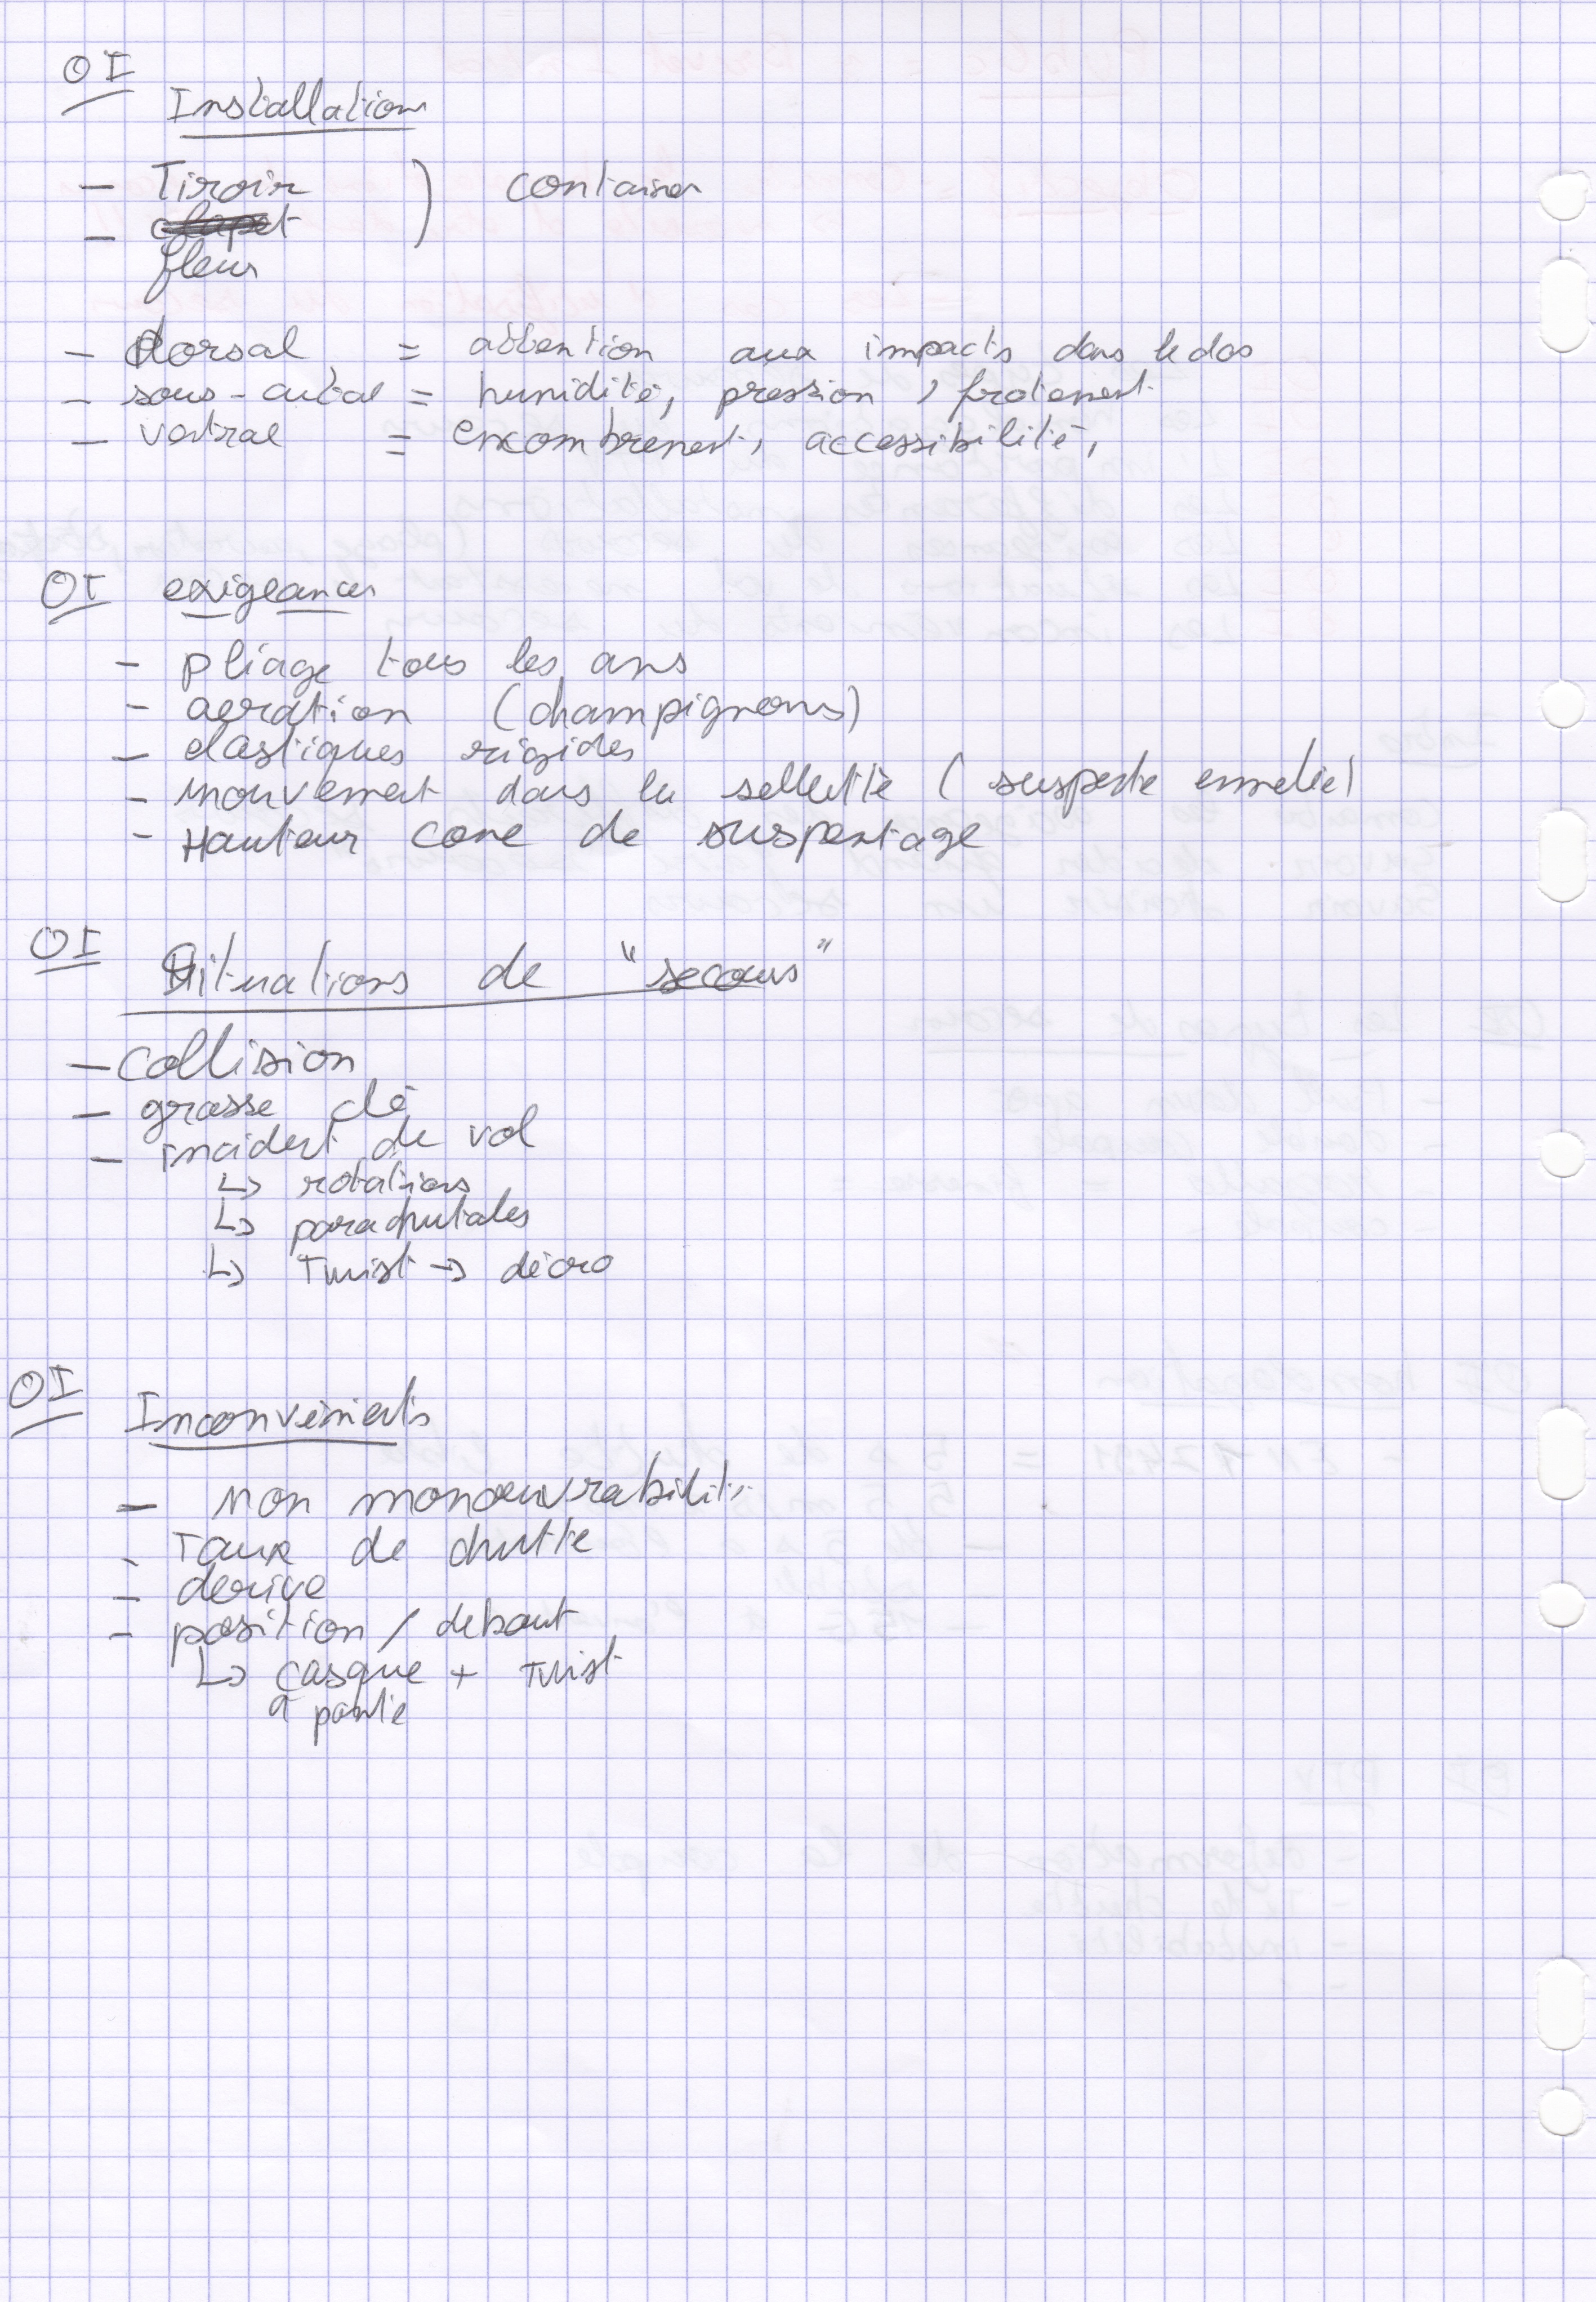 OI
Installation
- Tiroir ) container
- clapet
fleur
- dorsal = attention aux impacts dans le dos
- sous-cutal = humidité, pression, frotement
- ventral = encombrement, accessibilité,
OI exigeances
- pliage tous les ans
- aeration (champignons)
- elastiques rigides
- mouvement dans la sellette (suspente
- Hauteur cone de suspentage
OI
Situations de "secours"
- Collision
- grosse clé
- incident de vol
↳ rotations
↳ parachutales
↳ Twist → décro
OI
Inconvénients
- non manoeuvrabilité
- Taux de chutte
- derive
- position / debout
↳ casque + Twist
à pante